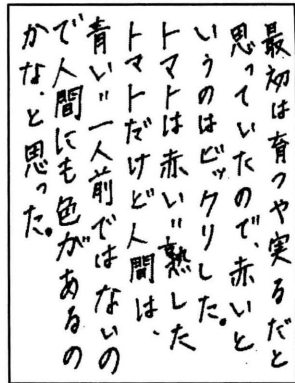 最初は育つや実るだと
思っていたので、赤いと
いうのはビックリした。
トマトは赤い〃熟した
トマトだけど人間は、
青い〃一人前ではないの
で人間にも色があるの
かな、と思った。